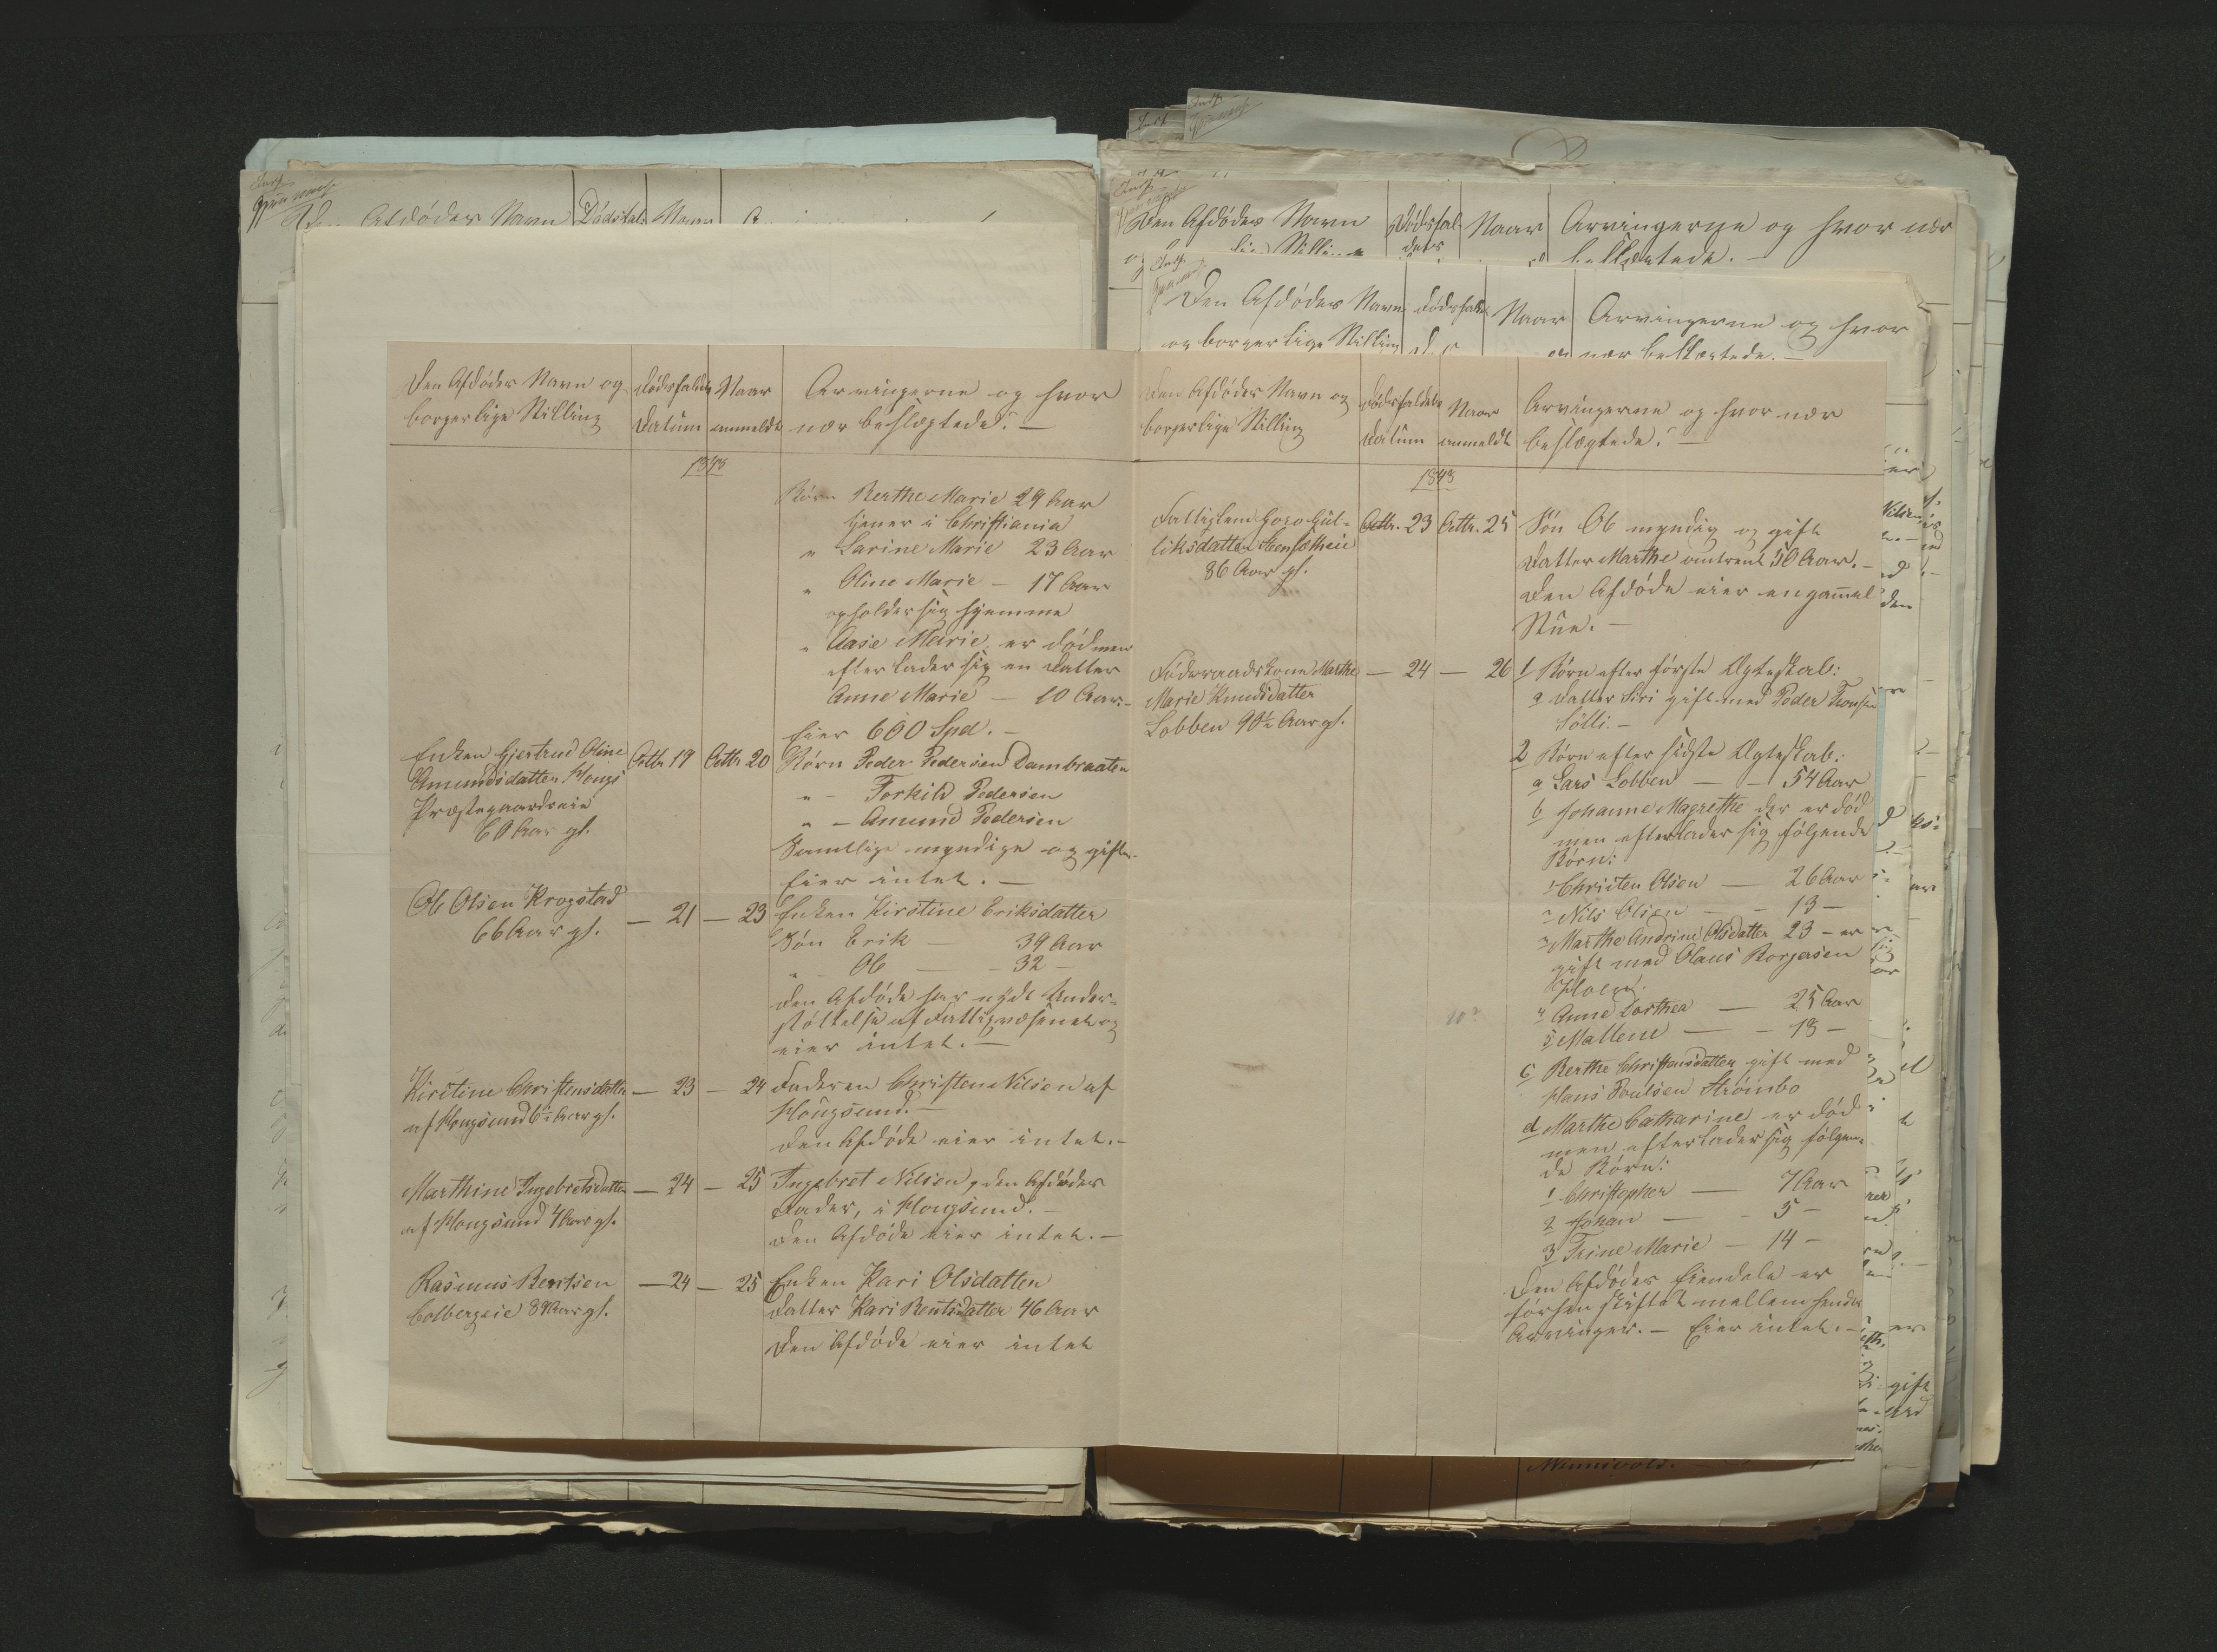 Den Afdødes Navn og borgerlige Stilling
Dødsfaldets Datum
Naar anmeldt
Arvingerne og hvor nær beslægtede.
1848
Børn Berthe Marie 29 Aar
tjener i Christiania
" Larine Marie 23 Aar
" Oline Marie - 17 Aar
opholder sig hjemme
" Aase Marie er død men
efterlader sig en Datter
Anne Marie - 10 Aar.-
Eier 600 Spd. -
Enken Gjertrud Oline
Amundsdatter Hougs
Præstegaardseie
60 Aar gl.
Octbr 19
Octbr 20
Børn Peder Pedersen Dambraaten
" - Torkild Pedersen
" - Amund Pedersen
Samtlige myndige og gifte.
Eier intet. -
Ole Olsen Krogstad
66 Aar gl.
- 21 - 23
Enken Kirstine Eriksdatter
Søn Erik - 39 Aar
" Ole - 32 -
Den Afdøde har nydt Under-
støttelse af Fattigvæsenet og
eier intet. -
Kirstine Christensdatter
af Hougsund Aar gl.
- 23 - 24
Faderen Christen Nilsen af
Hougsund. -
Den Afdøde eier intet. -
Marthine Ingebretsdatter
af Hougsund 4 Aar gl.
- 24 - 25
Ingebret Nilsen, den Afdødes
Fader, i Hougsund. -
Den Afdøde eier intet. -
Rasmus Bentsen
Colbergeie 84 Aar gl.
- 24 - 25
Enken Kari Olsdatter
Datter Kari Bentsdatter 46 Aar
Den Afdøde eier intet
Den Afdødes Navn og
borgerlige Stilling
Dødsfaldets
Datum
Naar
anmeldt
Arvingerne og hvor nær
beslægtede. -
1848
Fattiglem Goro Gul-
liksdatter Steensetheie
86 Aar gl.
Octbr. 23
Octbr. 25
Søn Ole myndig og gift
Datter Marthe omtrent 50 Aar. -
Den Afdøde eier en gammel
Stue. -
Føderaadskone Marthe
Marie Knudsdatter
Lobben 90½ Aar gl.
- 24 - 26
1 Børn efter første Ægteskab:
a Datter Siri gift med Peder
Sølli. -
2 Børn efter sidste Ægteskab:
a Lars Lobben - - 54 Aar
b Johanne Magrethe der er død
men efterlader sig følgende
Børn:
1 Christen Olsen - 26 Aar
2 Nils Olsen - - 13 -
3 Marthe Andrine Olsdatter 23 - er
gift med Olaus Borgersen
4 Anne Dorthea - 25 Aar
5 Mallene - - 18 -
c Berthe Christensdatter gift med
Hans Poulsen Strømbo
d Marthe Catharine er død
men efterlader sig følgen-
de Børn:
1 Christopher - 7 Aar
2 Johan - - 5 -
3 Trine Marie - 14 -
Den Afdødes Eiendele er
forhen skiftet mellem hendes
Arvinger. - Eier intet. -
Den Afdødes Navn
Dødsfal-
dets
Naar
Arvingerne og hvor nær
beslægtede. -
Den Afdødes Navn
og borgerlige Stilling
Dødsfaldets
Naar
Arvingerne og hvor
nær beslægtede. -